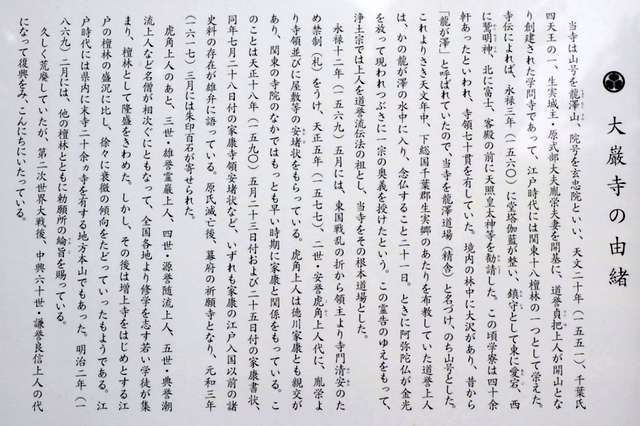 大巌寺の由緒
当寺は山号を龍澤山、院号を玄忠院といい、天文二十年（一五五一）、千葉氏
四天王の一、生実城主・原式部大夫胤栄夫妻を開基に、道誉貞把上人が開山とな
り創建された学問寺であって、江戸時代には関東十八檀林の一つとして栄えた。
寺伝によれば、永禄三年（一五六〇）に堂塔伽藍が整い、鎮守として東に愛宕、西
に鷲明神、北に富士、客殿の前に天照皇太神等を勧請した。この頃学寮は四十余
軒あったといわれ、寺領七十貫を有していた。境内の林中に大沢があり、昔から
「龍が澤」と呼ばれていたので、当寺を龍澤道場（精舎）と名づけ、のち山号とした。
これよりさき天文年中、下総国千葉郡生実郷のあたりを布教していた道誉上人
は、かの龍が澤の水中に入り、念仏すること二十一日。ときに阿弥陀仏が金光
を放って現われつぶさに一宗の奥義を授けたという。この霊告のゆえをもって、
浄土宗では上人を道誉流伝法の祖とし、当寺をその根本道場とした。
永禄十二年（一五六九）五月には、東国戦乱の折から領主より寺門清安のた
め禁制（札）をうけ、天正五年（一五七七）、二世・安誉虎角上人代に、胤栄よ
り寺領並びに屋敷等の安堵状をもらっている。虎角上人は徳川家康とも親交が
あり、関東の寺院のなかではもっとも早い時期に家康と関係をもっている。こ
のことは天正十八年（一五九〇）五月二十三日付および二十五日付の家康書状、
同年七月二十八日付の家康寺領安堵状など、いずれも家康の江戸入国以前の諸
史料の存在が雄弁に語っている。原氏滅亡後、幕府の祈願寺となり、元和三年
（一六一七）三月には朱印百石が寄せられた。
虎角上人のあと、三世・雄誉霊巌上人、四世・源誉随流上人、五世・典誉潮
流上人など名僧が相次ぐにともなって、全国各地より修学を志す若い学徒が集
まり、檀林として隆盛をきわめた。しかし、その後は増上寺をはじめとする江
戸の檀林の盛況に比し、徐々に衰微の傾向をたどっていったもようである。江
戸時代には県内に末寺二十余ヵ寺を有する地方本山でもあった。明治二年（一
八六九）二月には、他の檀林とともに勅願所の綸旨を賜っている。
久しく荒廃していたが、第二次世界大戦後、中興六十世・謙誉良信上人の代
になって復興をみ、こんにちにいたっている。